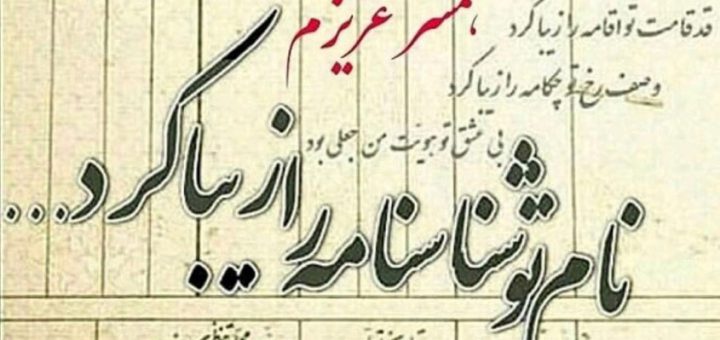 همسر عزیزم
قد قامت تو اقامه را زیبا کرد
وصف رخ تو چکامه را زیبا کرد
بی عشق تو هویت من جعلی بود
نام تو شناسنامه را زیبا کرد...